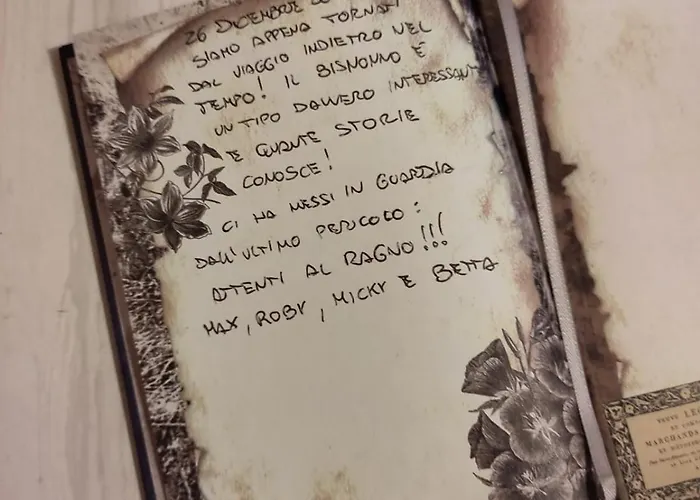 26 DICEMBRE
SIAMO APPENA TORNATI
DAL VIAGGIO INDIETRO NEL
TEMPO! IL BISNONNO È
UN TIPO DAVVERO INTERESSANTE
E QUANTE STORIE
CONOSCE!
CI HA MESSI IN GUARDIA
DALL'ULTIMO PERICOLO:
ATTENTI AL RAGNO!!!
MAX, ROBY, MICKY E BETTA
VEUVE
MARCHANDA